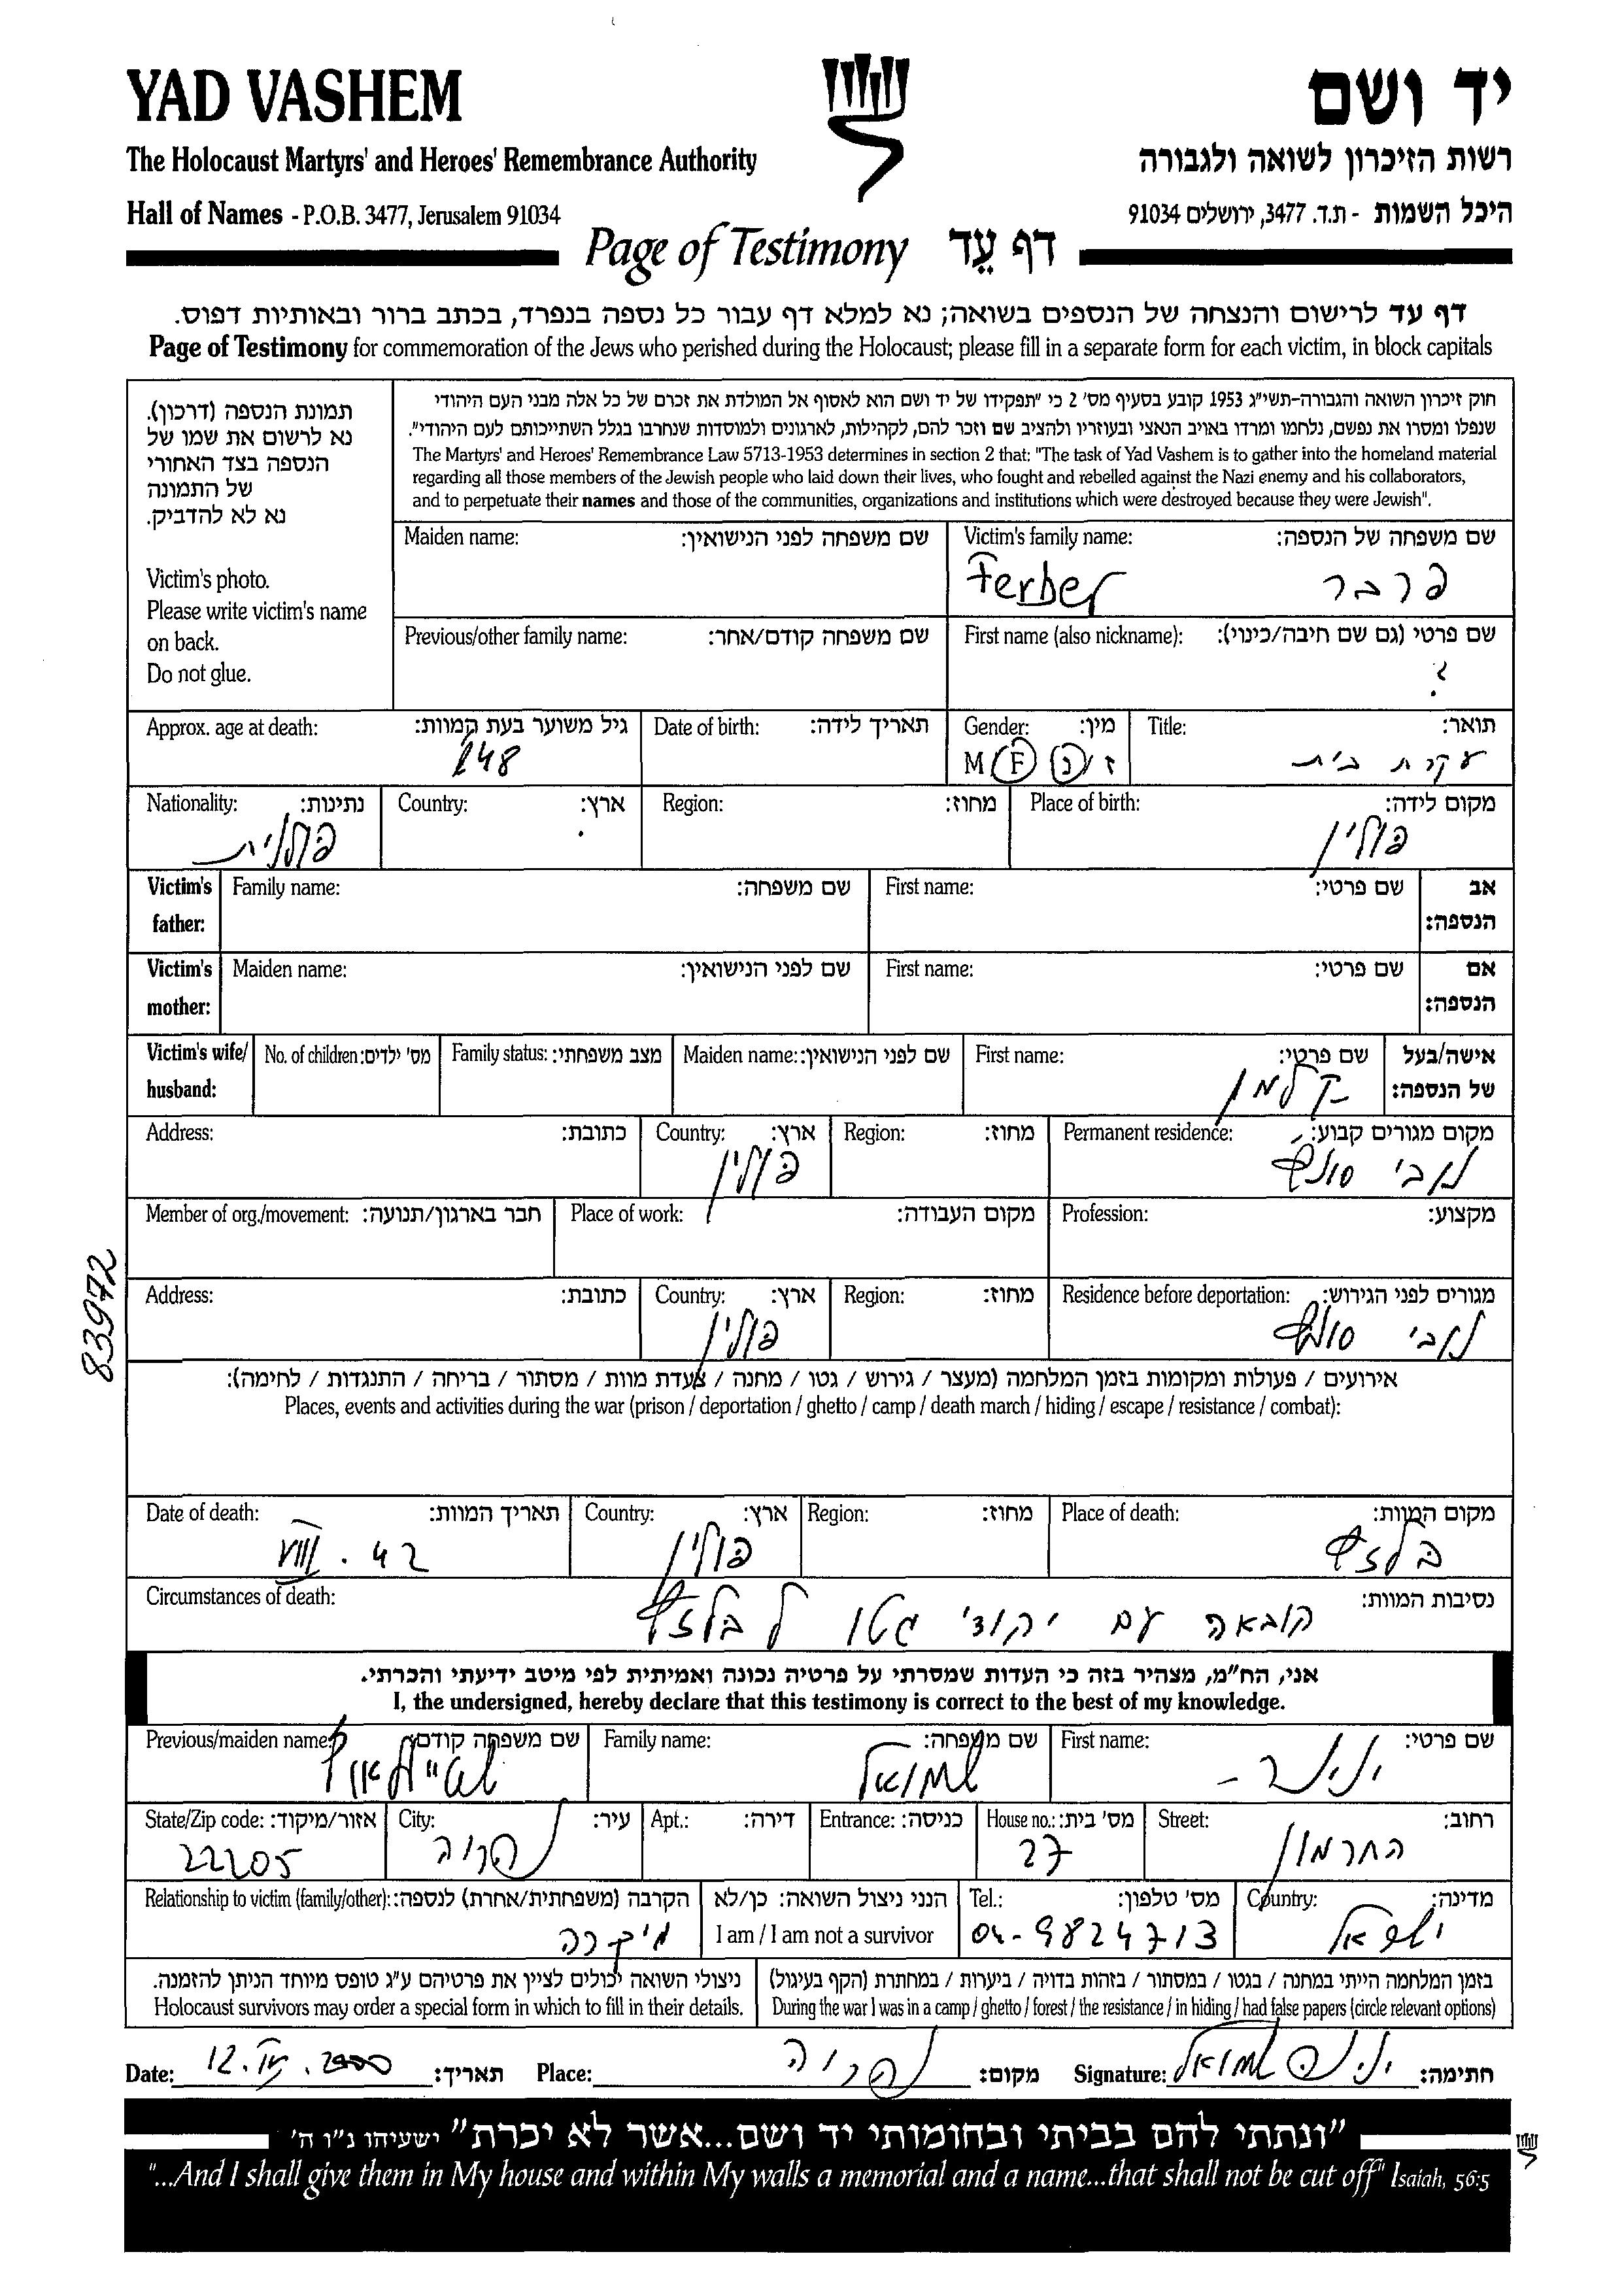 YAD VASHEM
יד ושם
The Holocaust Martyrs' and Heroes' Remembrance Authority
רשות הזיכרון לשואה ולגבורה
Hall of Names - P.O.B. 3477, Jerusalem 91034
היכל השמות - ת.ד. 3477, ירושלים 91034
Page of Testimony דף עֵד
דף עד לרישום והנצחה של הנספים בשואה; נא למלא דף עבור כל נספה בנפרד, בכתב ברור ובאותיות דפוס.
Page of Testimony for commemoration of the Jews who perished during the Holocaust; please fill in a separate form for each victim, in block capitals
תמונת הנספה (דרכון).
נא לרשום את שמו של
הנספה בצד האחורי
של התמונה
נא לא להדביק.
Victim's photo.
Please write victim's name
on back.
Do not glue.
חוק זיכרון השואה והגבורה-תשי"ג 1953 קובע בסעיף מס' 2 כי "תפקידו של יד ושם הוא לאסוף אל המולדת את זכרם של כל אלה מבני העם היהודי
שנפלו ומסרו את נפשם, נלחמו ומרדו באויב הנאצי ובעוזריו ולהציב שם וזכר להם, לקהילות, לארגונים ולמוסדות שנחרבו בגלל השתייכותם לעם היהודי".
The Martyrs' and Heroes' Remembrance Law 5713-1953 determines in section 2 that: "The task of Yad Vashem is to gather into the homeland material
regarding all those members of the Jewish people who laid down their lives, who fought and rebelled against the Nazi enemy and his collaborators,
and to perpetuate their names and those of the communities, organizations and institutions which were destroyed because they were Jewish".
Maiden name: שם משפחה לפני הנישואין:
Victim's family name: שם משפחה של הנספה:
Ferber פרבר
Previous/other family name: שם משפחה קודם/אחר:
First name (also nickname): שם פרטי (גם שם חיבה/כינוי):
?
Approx. age at death: גיל משוער בעת המוות:
48
Date of birth: תאריך לידה:
Gender: מין:
M F ז/נ
Title: תואר:
עקרת בית
Nationality: נתינות:
פולנית
Country: ארץ:
Region: מחוז:
Place of birth: מקום לידה:
פולין
Victim's father: Family name: שם משפחה: First name: שם פרטי: אב הנספה:
Victim's mother: Maiden name: שם לפני הנישואין: First name: שם פרטי: אם הנספה:
Victim's wife/ husband: No. of children: מס' ילדים: Family status: מצב משפחתי: Maiden name: שם לפני הנישואין: First name: שם פרטי: אישה/בעל של הנספה:
קלמן
Address: כתובת: Country: ארץ: Region: מחוז: Permanent residence: מקום מגורים קבוע:
פולין
Member of org./movement: חבר בארגון/תנועה: Place of work: מקום העבודה: Profession: מקצוע:
83972
Address: כתובת: Country: ארץ: Region: מחוז: Residence before deportation: מגורים לפני הגירוש:
פולין
אירועים / פעולות ומקומות בזמן המלחמה (מעצר / גירוש / גטו / מחנה / צעדת מוות / מסתור / בריחה / התנגדות / לחימה):
Places, events and activities during the war (prison / deportation / ghetto / camp / death march / hiding / escape / resistance / combat):
Date of death: תאריך המוות: Country: ארץ: Region: מחוז: Place of death: מקום המוות:
VIII . 42 פולין בלזץ
Circumstances of death: נסיבות המוות:
הובאה עם יהודי גטו ל בלזץ
אני, הח"מ, מצהיר בזה כי העדות שמסרתי על פרטיה נכונה ואמיתית לפי מיטב ידיעתי והכרתי.
I, the undersigned, hereby declare that this testimony is correct to the best of my knowledge.
Previous/maiden name: שם משפחה קודם: Family name: שם משפחה: First name: שם פרטי:
שמואל
State/Zip code: אזור/מיקוד: City: עיר: Apt.: דירה: Entrance: כניסה: House no.: מס' בית: Street: רחוב:
22205 נהריה 27 החרמון
Relationship to victim (family/other): הקרבה (משפחתית/אחרת) לנספה: הנני ניצול השואה: כן/לא
I am / I am not a survivor
Tel.: מס' טלפון: Country: מדינה:
04-9824713 ישראל
ניצולי השואה יכולים לציין את פרטיהם ע"ג טופס מיוחד הניתן להזמנה.
Holocaust survivors may order a special form in which to fill in their details.
בזמן המלחמה הייתי במחנה / בגטו / במסתור / בזהות בדויה / ביערות / במחתרת (הקף בעיגול)
During the war I was in a camp / ghetto / forest / the resistance / in hiding / had false papers (circle relevant options)
Date: 12. . 2000 תאריך: Place: נהריה מקום: Signature: שמואל חתימה:
"ונתתי להם בביתי ובחומותי יד ושם...אשר לא יכרת" ישעיהו נ"ו ה'
"...And I shall give them in My house and within My walls a memorial and a name...that shall not be cut off" Isaiah, 56:5